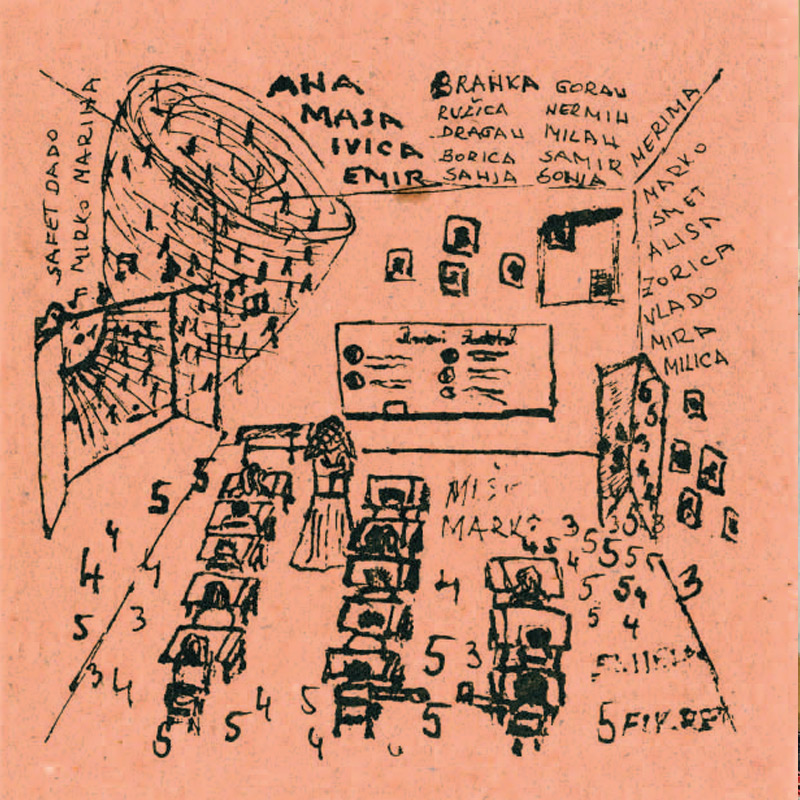 ANA
MAJA
IVICA
EMIR
BRANKA GORAN
RUŽICA NERMIN
DRAGAN MILAN
BORICA SAMIR
SANJA SONJA
SAFET DADO
MIRKO MARINA
MERIMA
MARKO
ISMET
ALISA
ZORICA
VLADO
MIRA
MILICA
6
5
3
4
5 5
4
4 4
5 3
3 4
5 5 4 5
4
4
5 3
5
3 5 3 5 3
4 5 4 5 5 5
5 5 4 3
5 4
MARKO
5